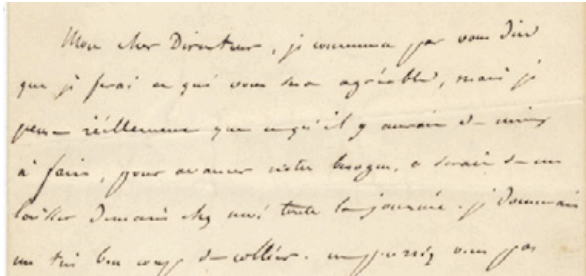 Mon cher Directeur, je commence par vous dire
que je ferai ce qui vous sera agréable, mais je
pense réellement que ce qu'il y aurait de mieux
à faire, pour avancer notre besogne, ce serait de me
laisser demain chez moi toute la journée. je donnerais
un très bon coup de collier. ne pourriez vous pas